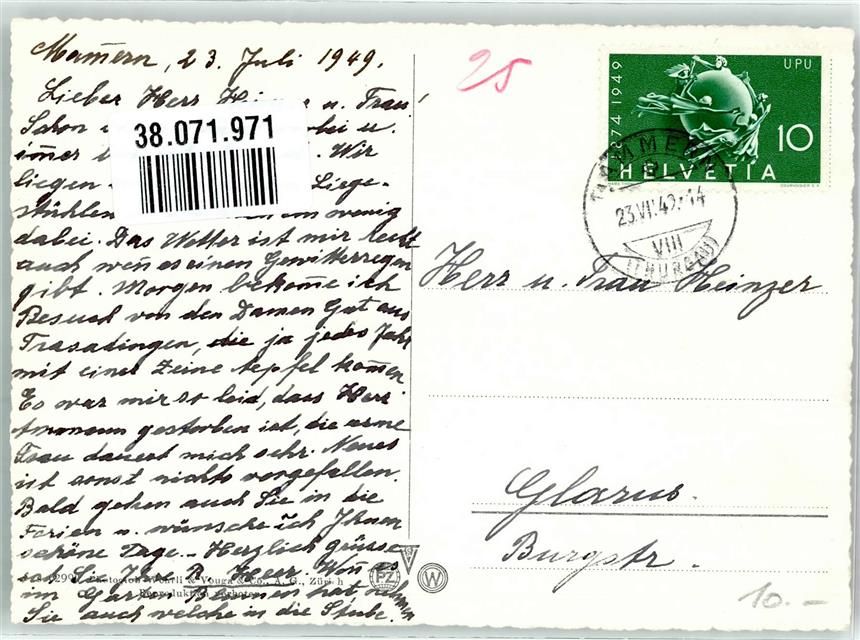 Mam̄ern, 23. Juli 1949.
Lieber Herr Heinzer u. Frau!
Schon
bei u.
im̄er
. Wir
liegen
Liege-
stühlen
ein wenig
dabei. Das Wetter ist mir recht
auch wen̄ es einen Gewitterregen
gibt. Morgen bekom̄e ich
Besuch von den Damen Gut aus
Trasadingen, die ja jedes Jahr
mit einer Zeine Aepfel kom̄en
Es war mir so leid, dass Herr
Ammann gestorben ist, die arme
Frau dauert mich sehr. Neues
ist sonst nichts vorgefallen.
Bald gehen auch Sie in die
Ferien u. wünsche ich Ihnen
schöne Tage. - Herzlich grüsse
Sie Ihre R. Heer. Wen̄ es
im Garten Blumen hat nehmen
Sie auch welche in die Stube.
38.071.971
Photoglob-Wehrli & Vouga & Co., A. G., Zürich
Reproduktion verboten
PZ
W
25
1874 1949
UPU
10
HELVETIA
COURVOISIER S.A.
MAMMERN
23.VII.49.-14
VIII
(THURGAU)
Herr u. Frau Heinzer
Glarus.
Burgstr.
10.-